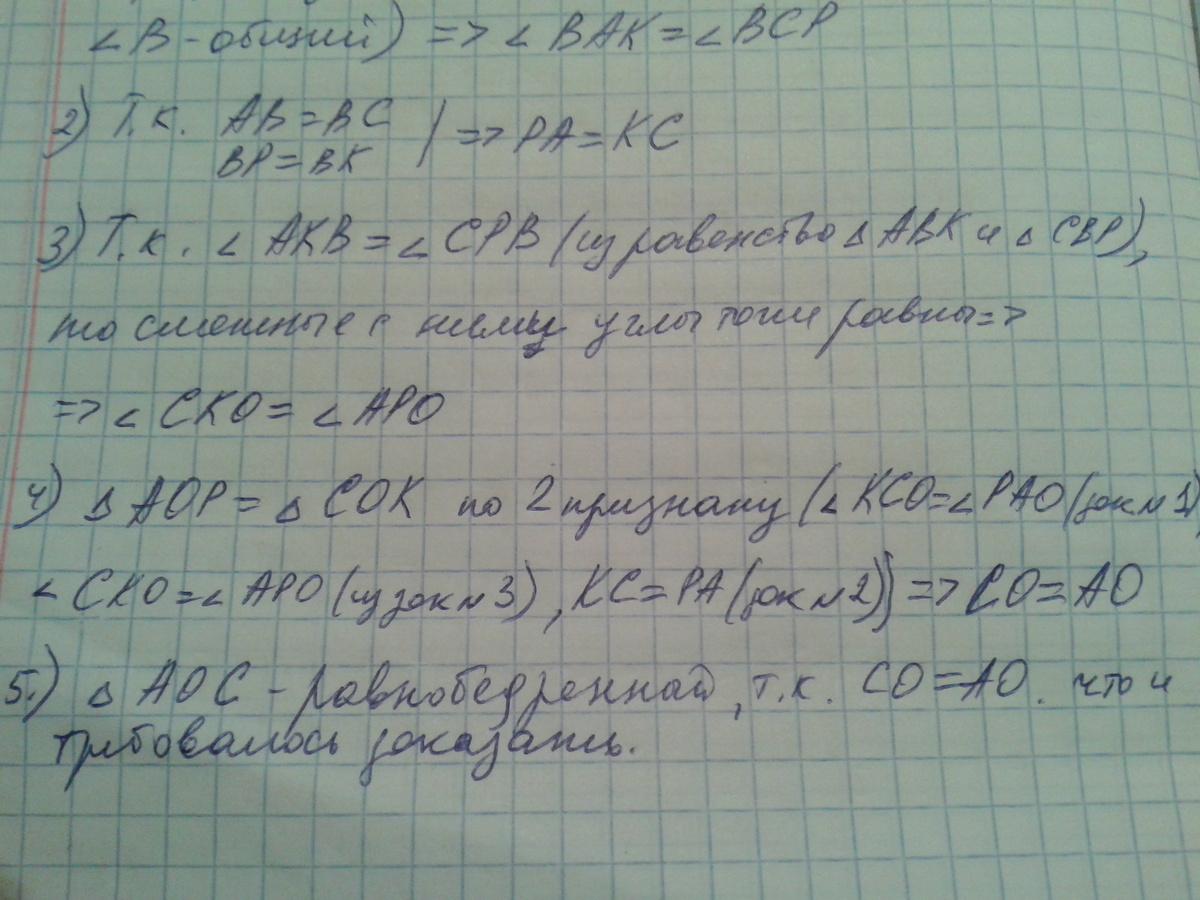 ∠B - общий) => ∠BAK = ∠BCP
2) Т.к. AB = BC
BP = BK | => PA = KC
3) Т.к. ∠AKB = ∠CPB (из равенство △ABK и △CBP),
то смежные с ними углы тоже равны =>
=> ∠CKO = ∠APO
4) △AOP = △COK по 2 признаку (∠KCO = ∠PAO (док №1)
∠CKO = ∠APO (из док №3), KC = PA (док №2)) => CO = AO
5.) △AOC - равнобедренный, т.к. CO = AO. что и
требовалось доказать.